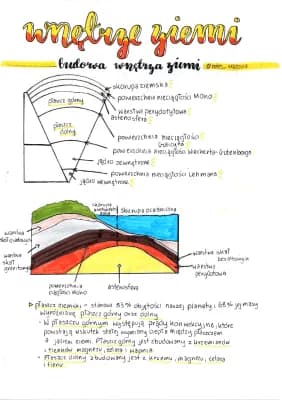 wnętrze ziemi
budowa wnętrza ziemi
skorupa ziemska
powierzchnia nieciągłości Moho
warstwa perydotytowa
astenosfera
płaszcz górny
płaszcz dolny
powierzchnia nieciągłości
Golicyna
powierzchnia nieciągłości Wiecherta-Gutenberga
jądro zewnętrzne
powierzchnia nieciągłości Lehmann
jądro wewnętrzne
skorupa
skorupa oceaniczna
warstwa
skał osadowych
warstwa
skał
granitowych
warstwa skał
bazaltowych
warstwa
perydotytowa
powierzchnia
nieciągłości Moho
astenosfera
płaszcz ziemski - stanowi 83% objętości naszej planety i 68% jej masy
wyróżniamy płaszcz górny oraz dolny
- W płaszczu górnym występują prądy konwekcyjne, które
powstają wskutek stałej wymiany ciepła między płaszczem
a jądrem ziemi. Płaszcz górny jest zbudowany z krzemianów
i tlenków magnezu, żelaza i wapnia.
- Płaszcz dolny zbudowany jest z krzemu, magnezu, żelaza
i tlenu.